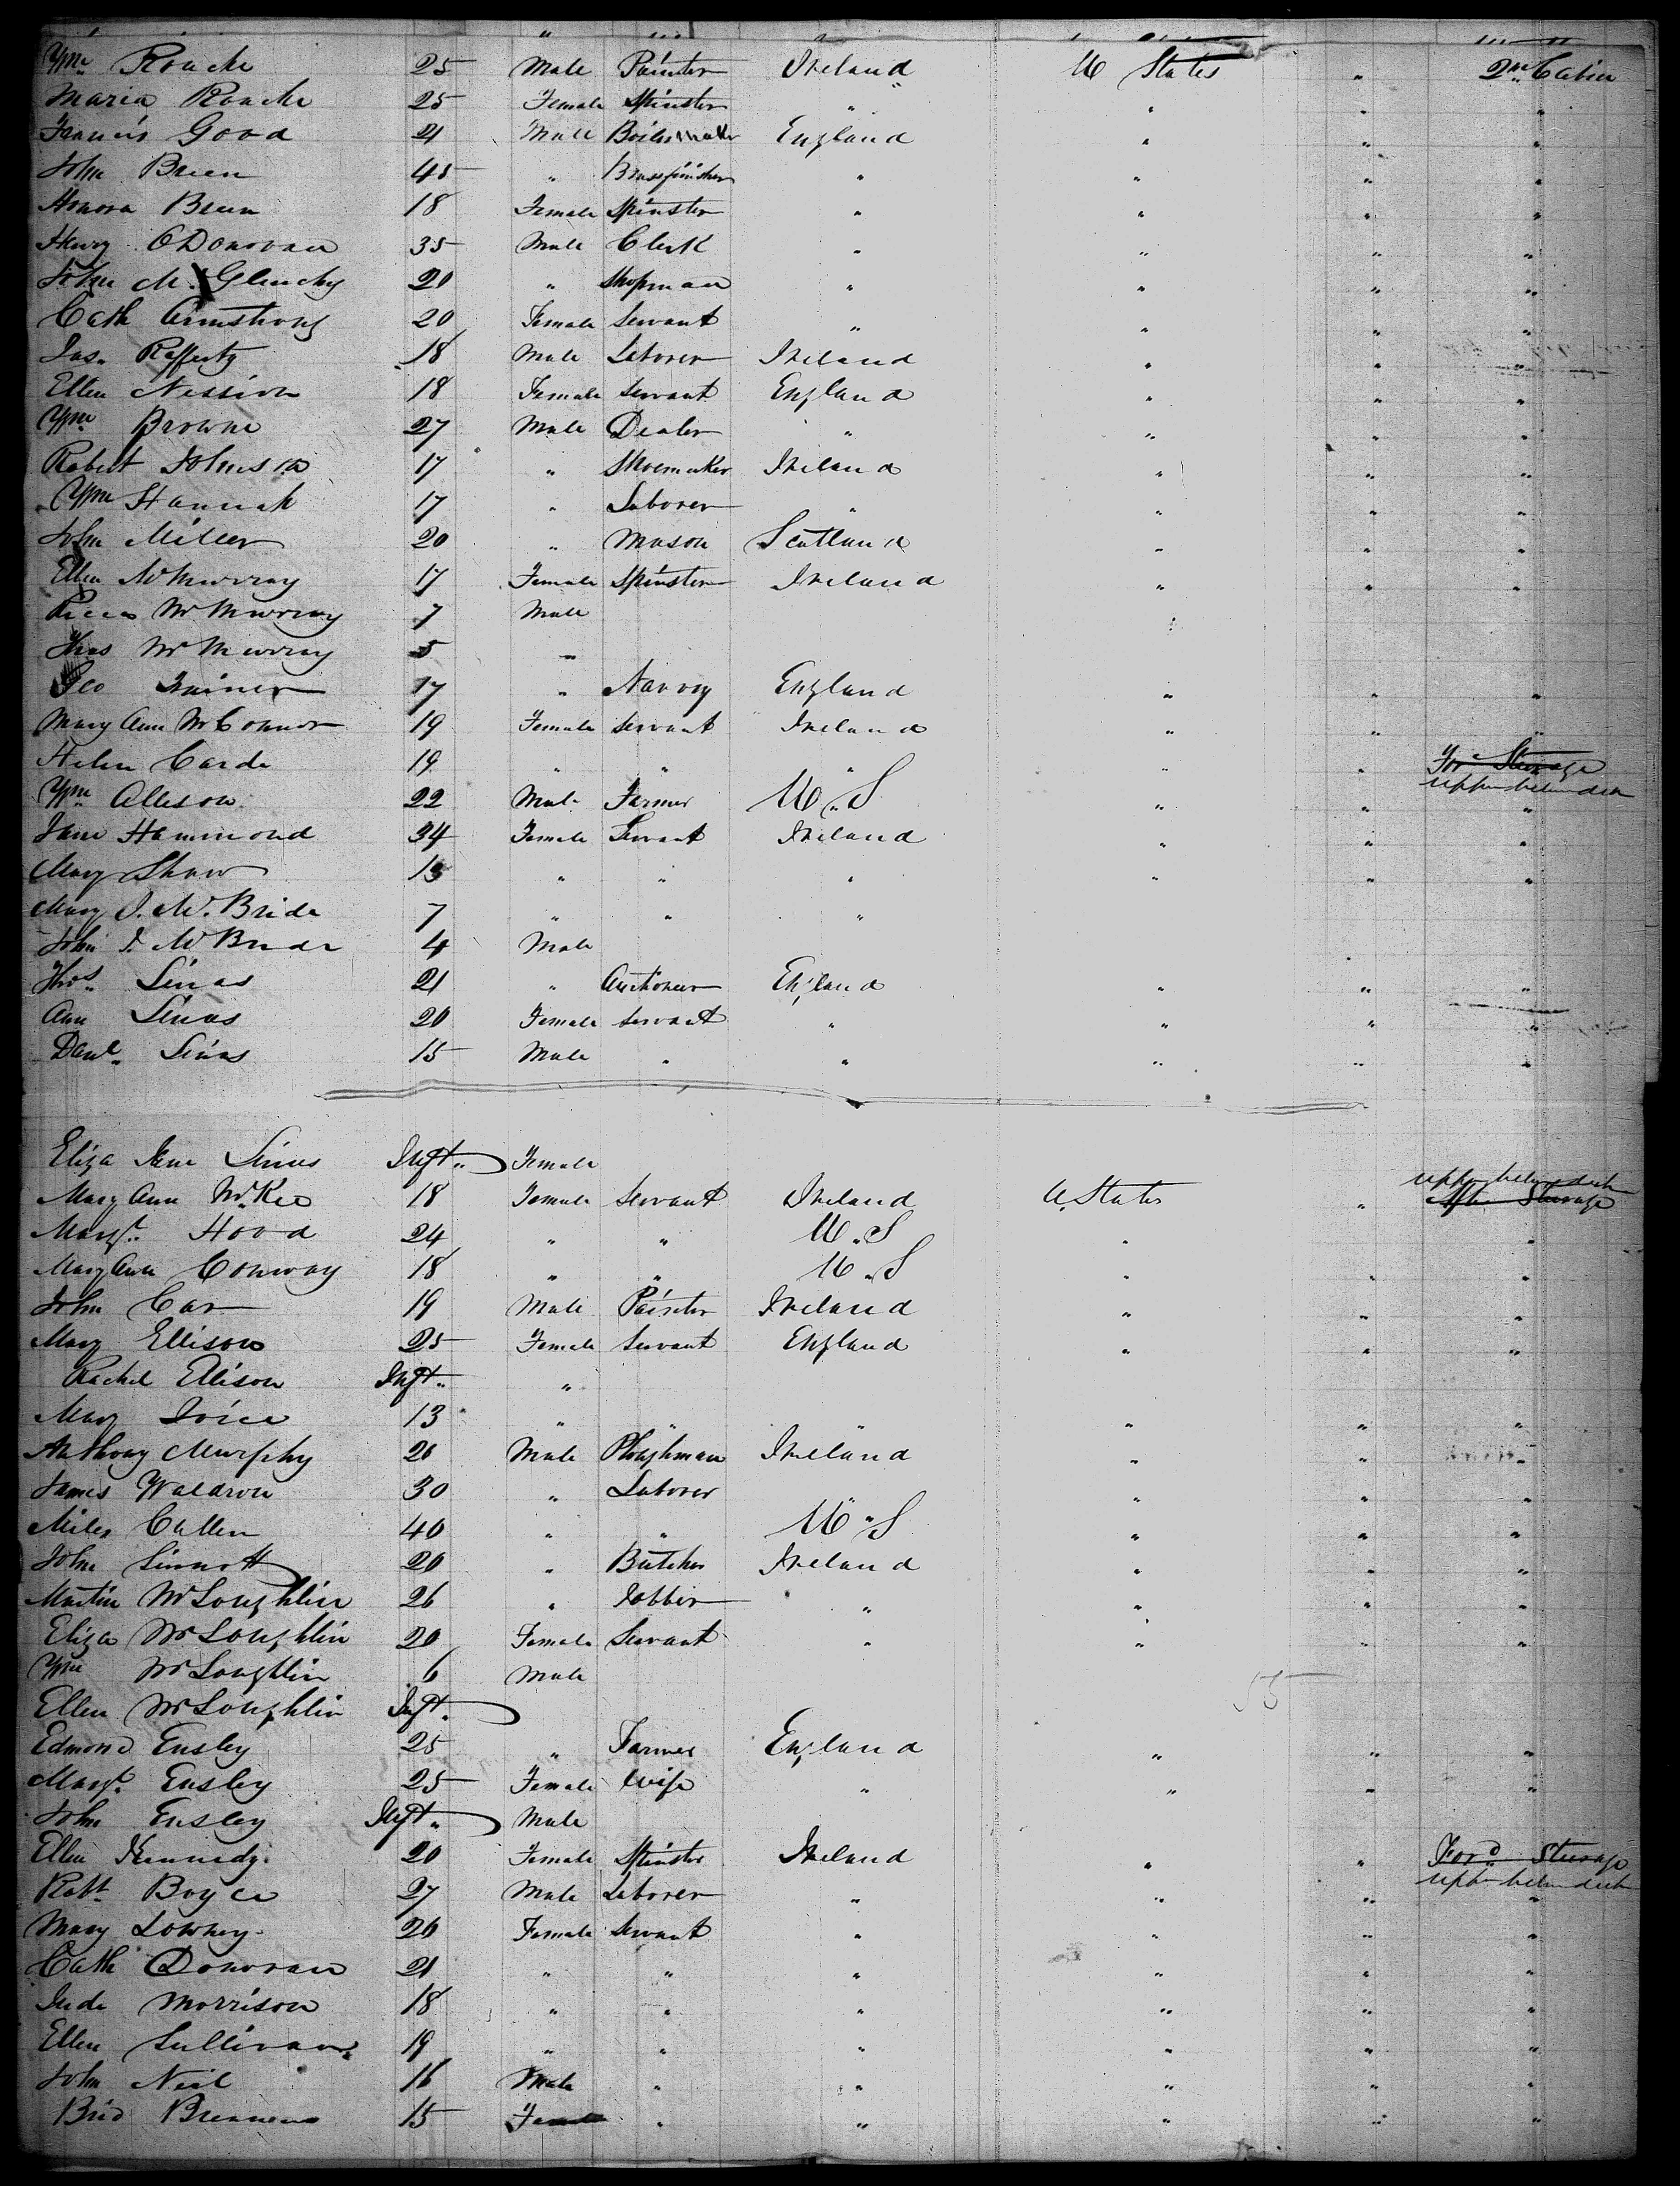 Wm. Rouche 25 Male Painter Ireland U States " 2nd Cabin
Maria Rouche 25 Female Spinster " " " "
Francis Good 21 Male Boilermaker England " " "
John Breen 45 " Brassfinisher " " " "
Honora Breen 18 Female Spinster " " " "
Henry O'Donovan 35 Male Clerk " " " "
John Mc Glinchy 20 " Shopman " " " "
Cath Armstrong 20 Female Servant " " " "
Jas. Rafferty 18 Male Laborer Ireland " " "
Ellen Nession 18 Female Servant England " " "
Wm. Browne 27 Male Dealer " " " "
Robert Johnston 17 " Shoemaker Ireland " " "
Wm Hannah 17 " Laborer " " " "
John Miller 20 " Mason Scotland " " "
Ellen McMurray 17 Female Spinster Ireland " " "
McMurray 7 Male "
Thos McMurray 5 "
Geo Trainer 17 " Navvy England " " "
Mary Ann McConnor 19 Female Servant Ireland " " "
Helen Carde 19 " " " " " For Steerage
upper between deck
Wm. Allison 22 Male Farmer U.S " " "
Jane Hammond 34 Female Servant Ireland " " "
Mary Shaw 13 " " " " " "
Mary J. McBride 7 " " "
John J. McBride 4 Male
Thos. Sinas 21 " Auctioneer England " " "
Ann Sinas 20 Female Servant " " " "
Danl. Sinas 15 Male " " " " "
Eliza Jane Sinas Inft. Female
upper between deck
Mary Ann McKee 18 Female Servant Ireland U. States " After Steerage
Margt. Hood 24 " " U.S " "
Mary Ann Conway 18 " " U.S " " "
John Car 19 Male Painter Ireland " " "
Mary Ellison 25 Female Servant England " " "
Rachel Ellison Inft. "
Mary Joice 13 " " " " " "
Anthony Murphy 20 Male Ploughman Ireland " " "
James Waldron 30 " Laborer " " " "
Miles Cullen 40 " " U.S " " "
John Sinnott 20 " Butcher Ireland " " "
Martin McLoughlin 26 " Jobber " " " "
Eliza McLoughlin 20 Female Servant " " " "
Wm McLoughlin 6 Male
Ellen McLoughlin Inft.
Edmond Ensley 25 " Farmer England " " "
Margt. Ensley 25 Female Wife " " " "
John Ensley Inft. Male
Ellen Kennedy 20 Female Spinster Ireland " " Ford. Steerage
upper between deck
Robt. Boyce 27 Male Laborer " " " "
Mary Lowney 26 Female Servant " " " "
Cath Donovan 21 " " " " " "
Jude Morrison 18 " " " " " "
Ellen Sullivan 19 " " " " " "
John Neil 16 Male " " " " "
Brid Brennan 15 Female " " " " "